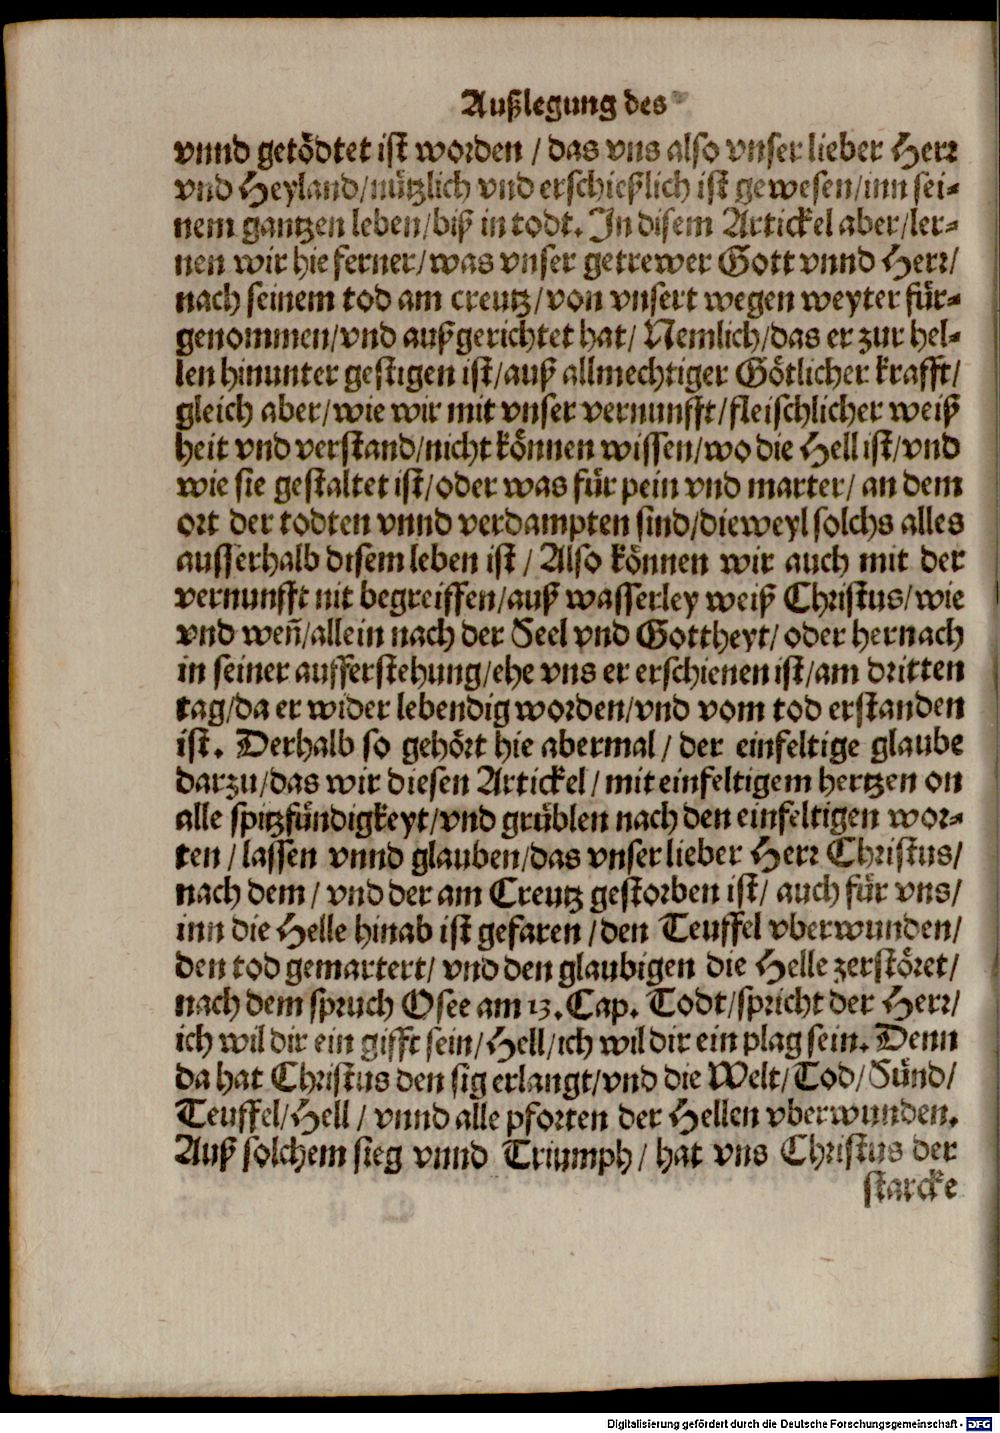 Außlegung des
vnnd getödtet ist worden / das vns also vnser lieber Herr
vnd Heyland/nützlich vnd erschießlich ist gewesen/inn sei-
nem gantzen leben/biß in todt. In disem Artickel aber/ler-
nen wir hie ferner/was vnser getrewer Gott vnnd Herr/
nach seinem tod am creutz/von vnsert wegen weyter für-
genommen/vnd außgerichtet hat/ Nemlich/das er zur hel-
len hinunter gestigen ist/auß allmechtiger Götlicher krafft/
gleich aber/wie wir mit vnser vernunfft/fleischlicher weiß
heit vnd verstand/nicht können wissen/wo die Hell ist/vnd
wie sie gestaltet ist/oder was für pein vnd marter/ an dem
ort der todten vnnd verdampten sind/dieweyl solchs alles
ausserhalb disem leben ist / Also können wir auch mit der
vernunfft nit begreiffen/auß wasserley weiß Christus/wie
vnd weñ/allein nach der Seel vnd Gottheyt/ oder hernach
in seiner aufferstehung/ehe vns er erschienen ist/am dritten
tag/da er wider lebendig worden/vnd vom tod erstanden
ist. Derhalb so gehört hie abermal / der einfeltige glaube
darzu/das wir diesen Artickel / mit einfeltigem hertzen on
alle spitzfündigkeyt/vnd grüblen nach den einfeltigen wor-
ten / lassen vnnd glauben/das vnser lieber Herr Christus/
nach dem / vnd der am Creutz gestorben ist/ auch für vns/
inn die Helle hinab ist gefaren / den Teuffel vberwunden/
den tod gemartert/ vnd den glaubigen die Helle zerstöret/
nach dem spruch Osee am 13. Cap. Todt/spricht der Herr/
ich wil dir ein gifft sein/Hell/ich wil dir ein plag sein. Denn
da hat Christus den sig erlangt/vnd die Welt/Tod/Sünd/
Teuffel/Hell / vnnd alle pforten der Hellen vberwunden.
Auß solchem sieg vnnd Triumph / hat vns Christus der
starcke
Digitalisierung gefördert durch die Deutsche Forschungsgemeinschaft - DFG